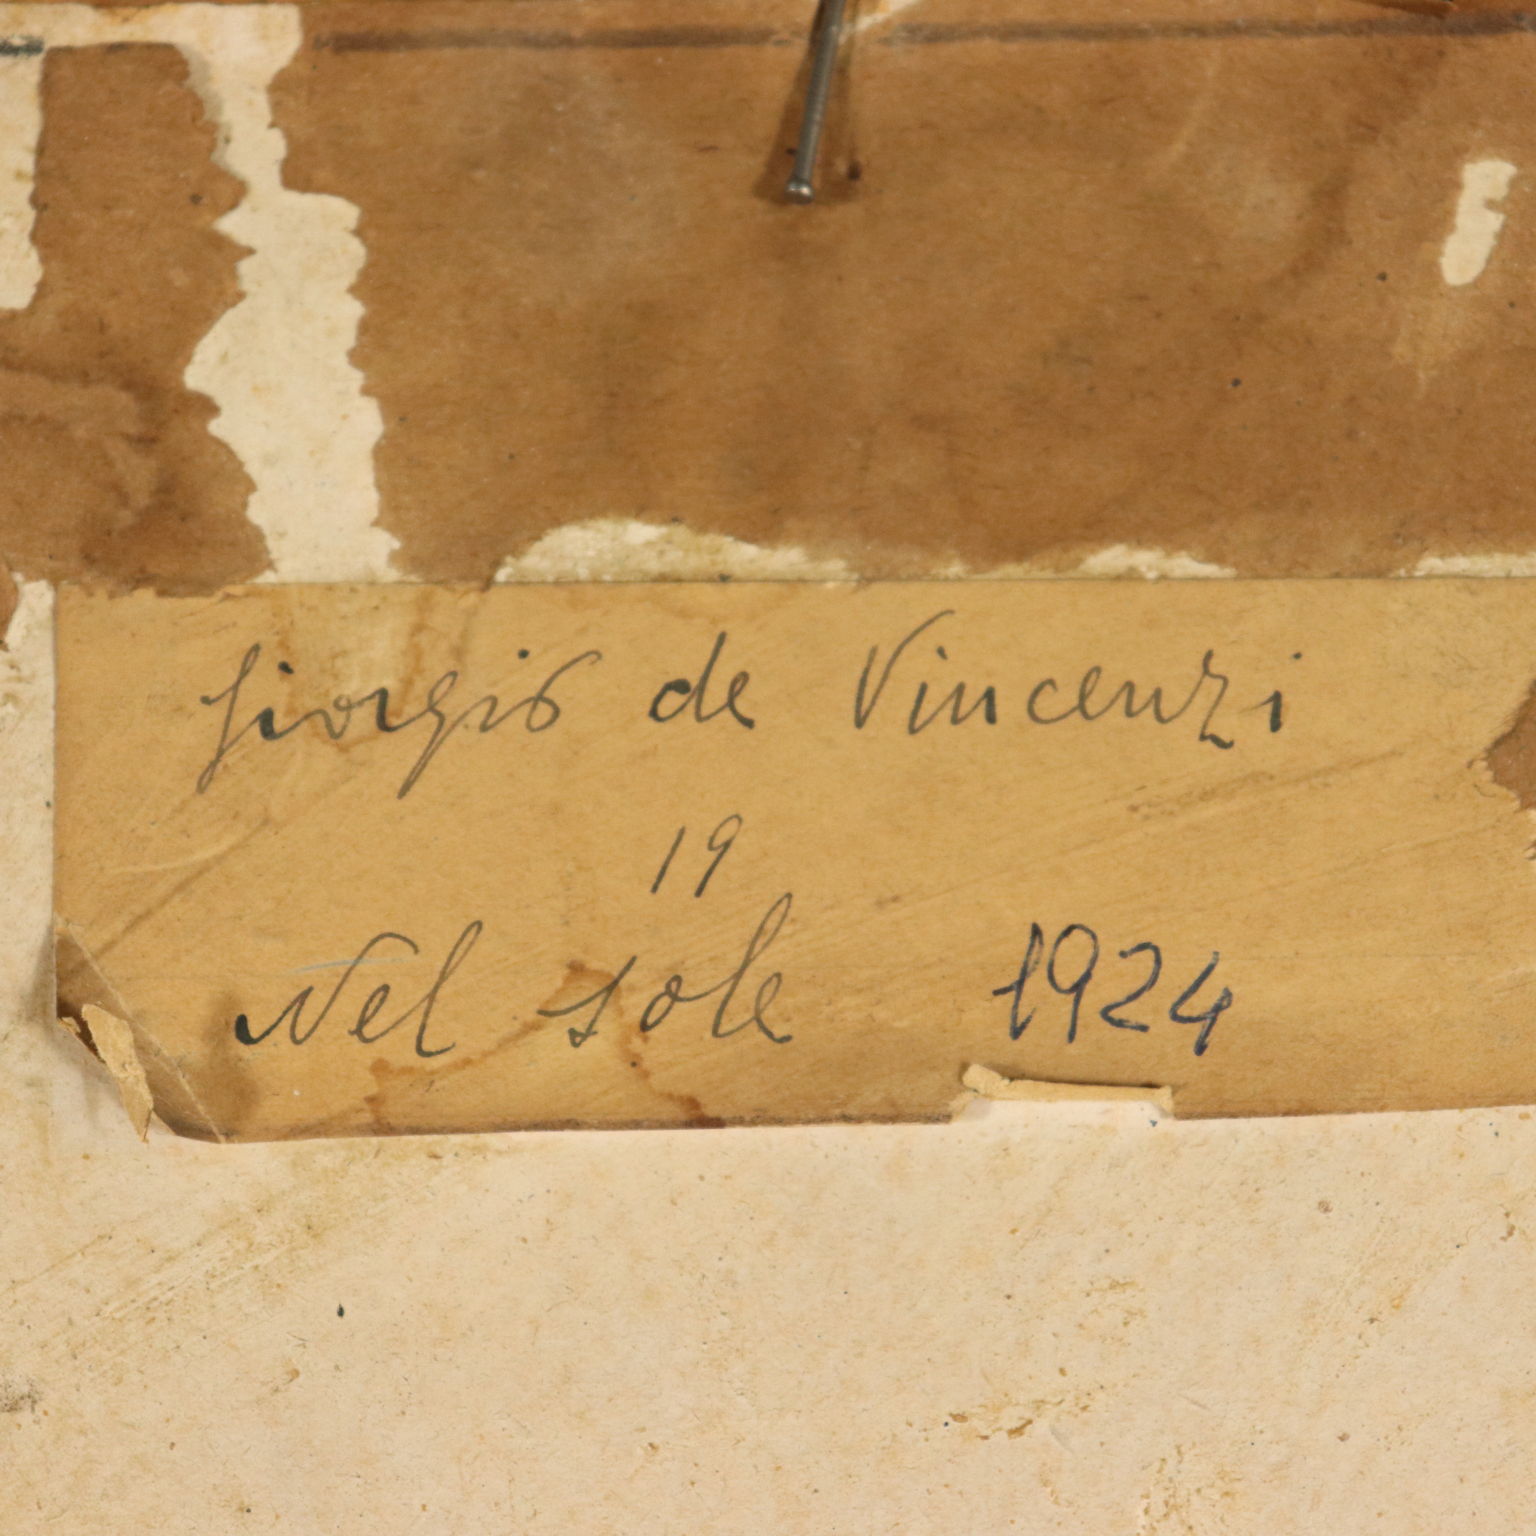 Giorgio de Vincenzi
19
Nel sole 1924